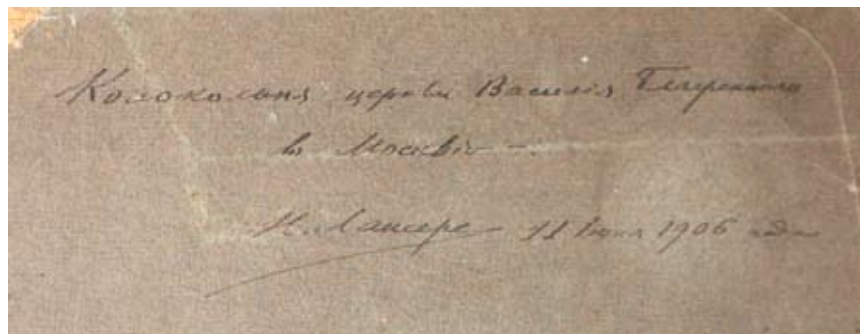 Колокольня церкви Василія Блаженного
въ Москвѣ —.
Н. Лансере 11 Іюня 1906 года